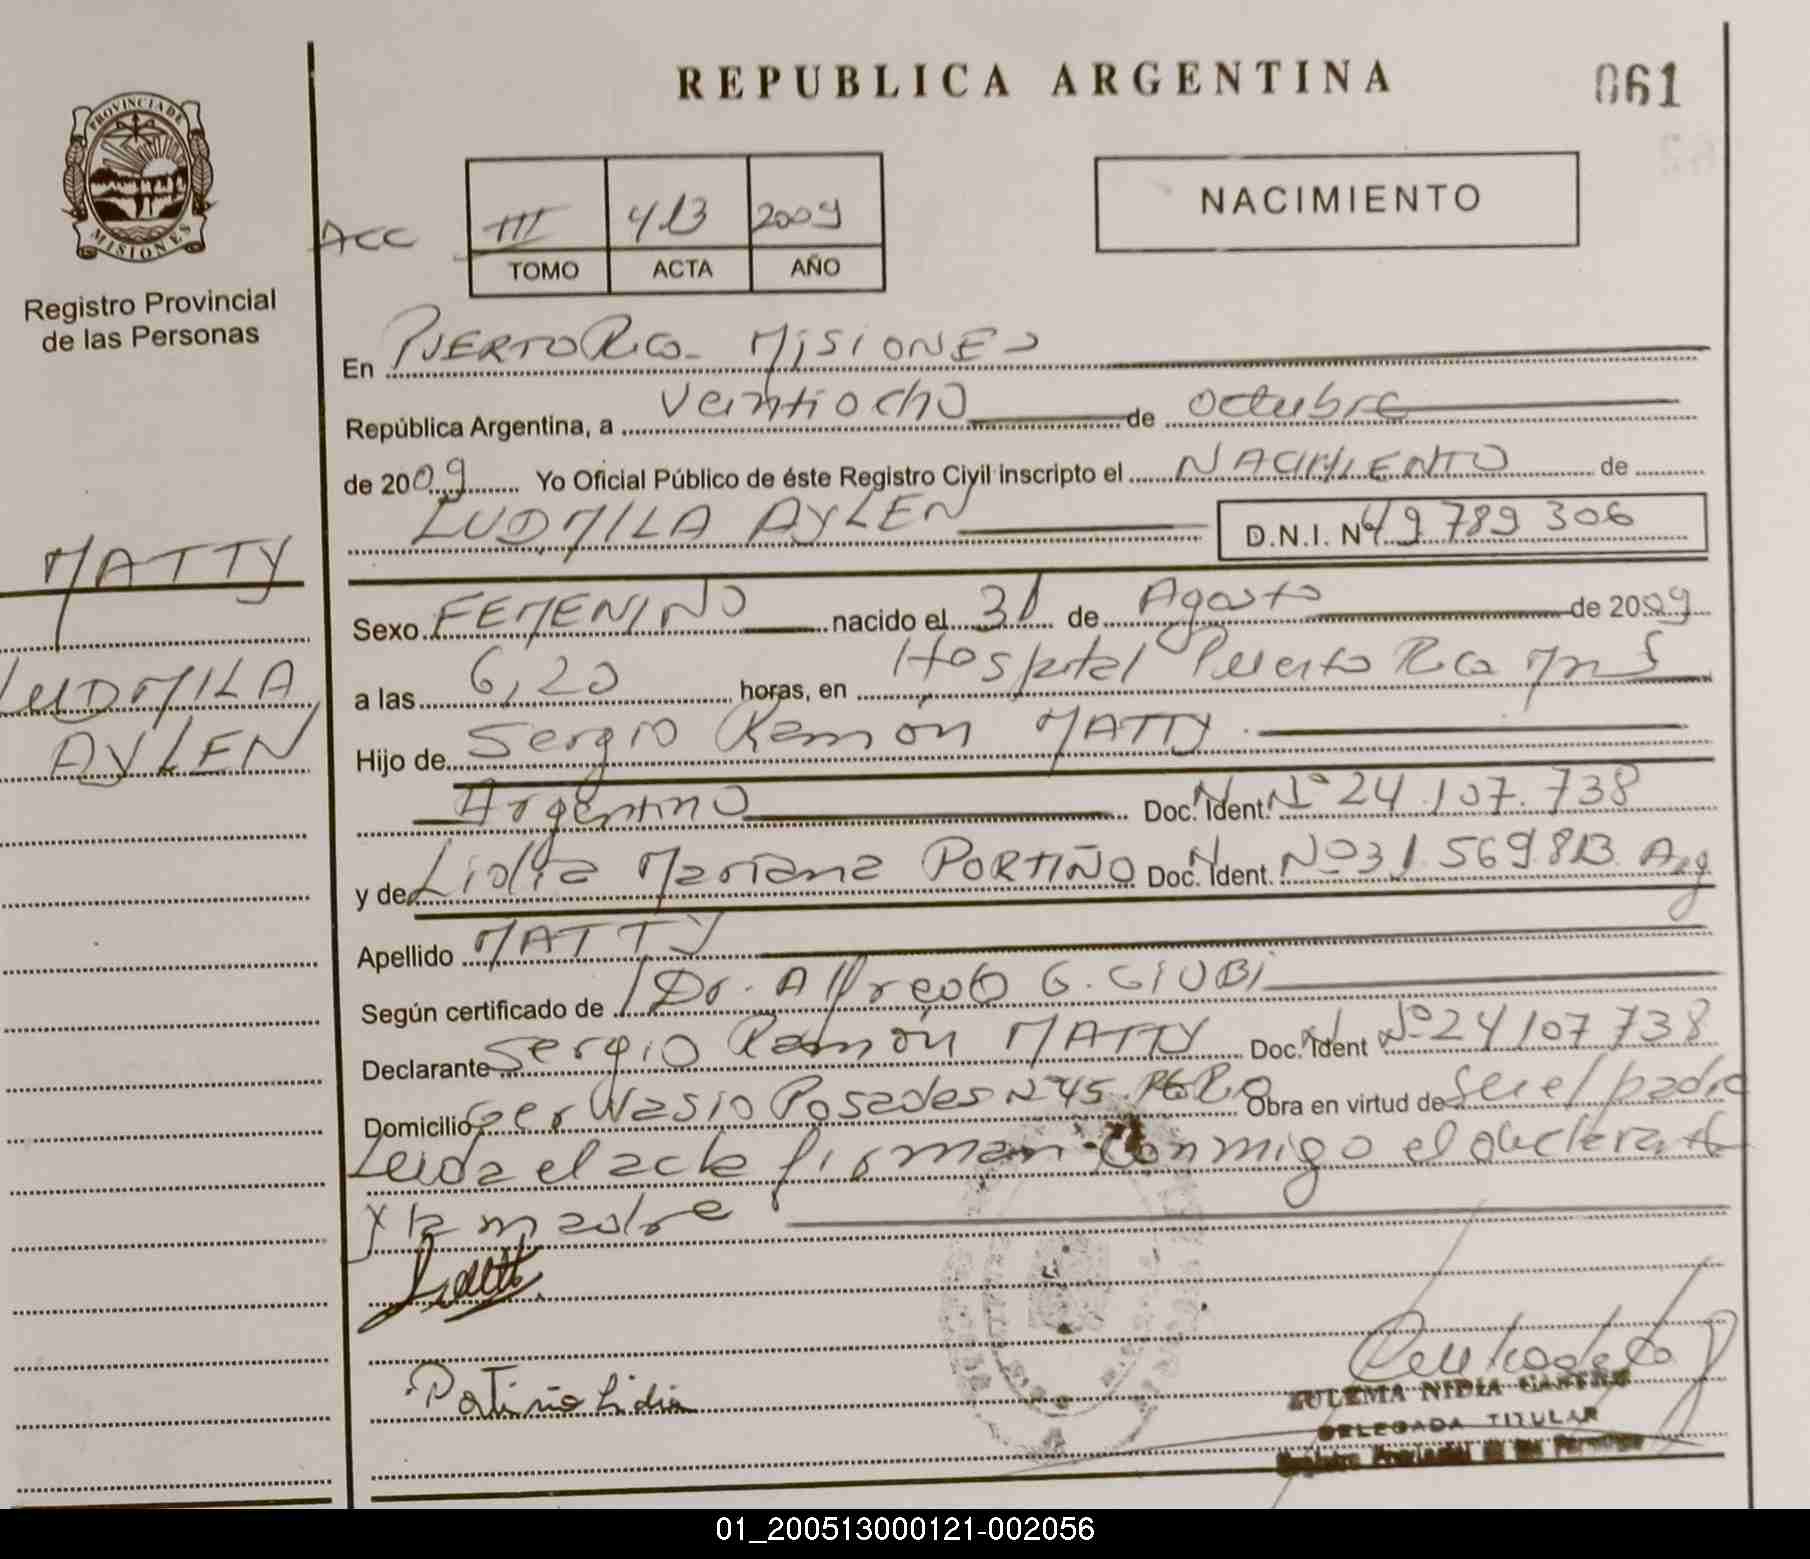 REPUBLICA ARGENTINA
061
PROVINCIA DE
MISIONES
Registro Provincial
de las Personas
ACC
III 413 2009
TOMO ACTA AÑO
NACIMIENTO
En PUERTO RICO - MISIONES
República Argentina, a veintiocho de octubre
de 2009 Yo Oficial Público de éste Registro Civil inscripto el NACIMIENTO de
LUDMILA AYLEN D.N.I. Nº 49 789 306
MATTY
LUDMILA
AYLEN
Sexo FEMENINO nacido el 31 de Agosto de 2009
a las 6,20 horas, en Hospital Puerto Rico Mns
Hijo de Sergio Ramón MATTY
Argentino Doc. N. Ident. Nº 24.107.738
y de Lidia Mariana PORTIÑO Doc. N. Ident. Nº 31.569.813 Arg
Apellido MATTY
Según certificado de Dr. Alfredo G. GIUBI
Declarante Sergio Ramón MATTY Doc. N. Ident Nº 24 107 738
Domicilio Gervasio Posadas Nº 45 Obra en virtud de ser el padre
Leida el acta firman conmigo el declarante
y la madre
Portiño Lidia
ZULEMA NIDIA
DELEGADA TITULAR
Registro Provincial de las Personas
01_200513000121-002056